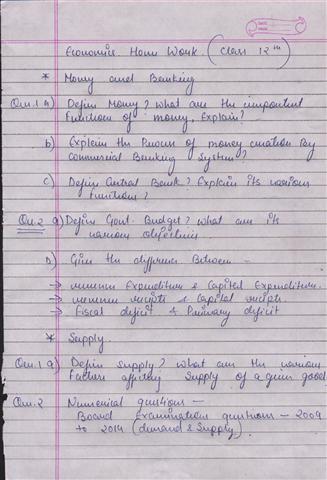 Economics Home Work. (Class 12th)
* Money and Banking
Que.1 a) Define Money? What are the important
functions of money, Explain?
b) Explain the Process of money creation By
Commercial Banking System?
c) Define Central Bank? Explain its various
functions?
Que.2 a) Define Govt. Budget? What are its
various objectives
b) Give the difference Between –
→ revenue Expenditure & Capital Expenditure.
→ revenue receipts & Capital receipts.
→ Fiscal deficit & Primary deficit
* Supply.
Que.1 a) Define Supply? What are the various
factors affecting Supply of a given good
Que.2 Numerical questions –
Board Examination questions – 2009
to 2014 (demand & Supply)